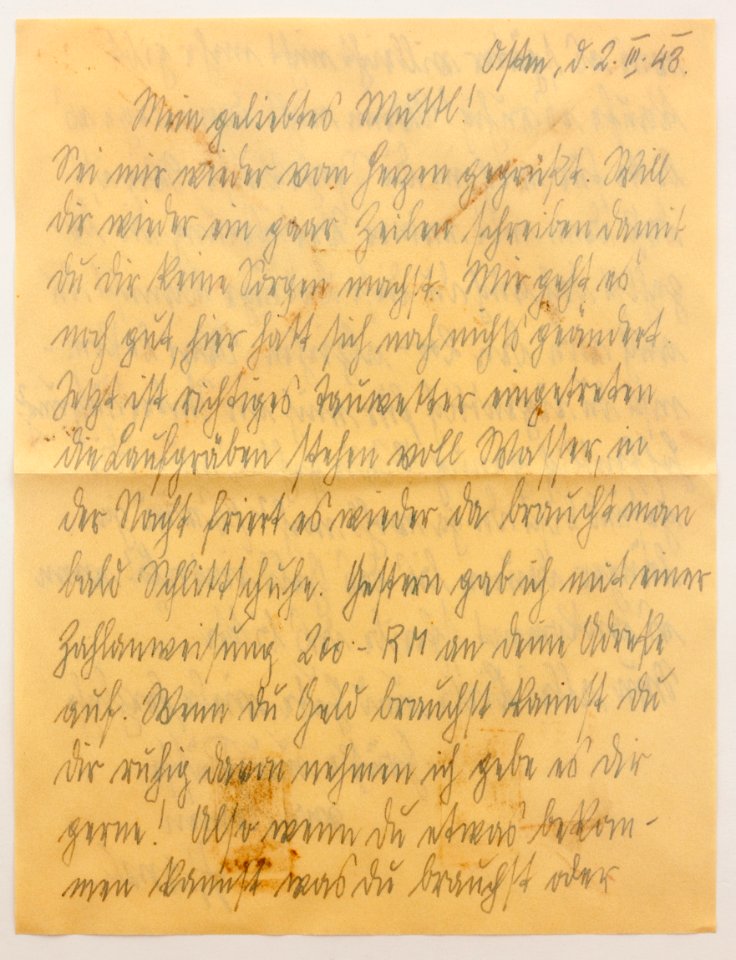 Osten, d. 2. III. 43.
Mein geliebtes Muttl!
Sei mir wieder vom Herzen gegrüßt. Will
dir wieder ein paar Zeilen schreiben damit
du dir keine Sorgen machst. Mir geht es
noch gut, hier hatt sich noch nichts geändert.
Jetzt ist richtiges Tauwetter eingetreten
die Laufgräben stehen voll Wasser, in
der Nacht friert es wieder da braucht man
bald Schlittschuhe. Gestern gab ich mit einer
Zahlanweisung 200.- RM an deine Adreße
auf. Wenn du Geld brauchst kannst du
dir ruhig davon nehmen ich gebe es dir
gerne! Also wenn du etwas bekom-
men kannst was du brauchst oder